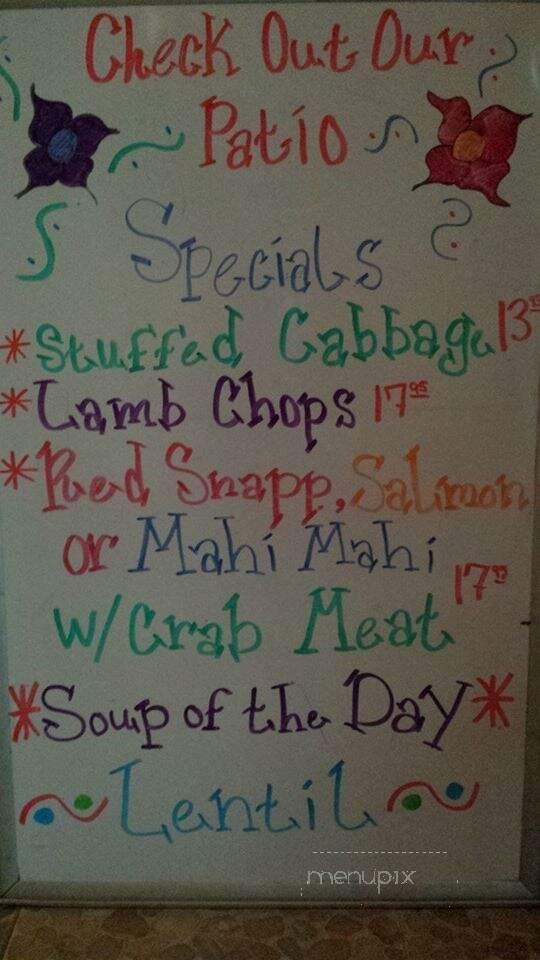 Check Out Our
Patio
Specials
*Stuffed Cabbage 13
*Lamb Chops 17⁹⁵
*Red Snapp, Salmon
or Mahi Mahi
17
w/Crab Meat
*Soup of the Day*
~Lentil~
menupix